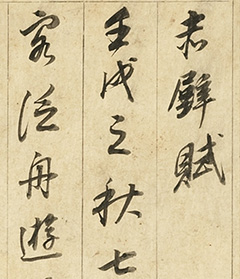 赤壁賦
壬戌之秋七
客泛舟遊